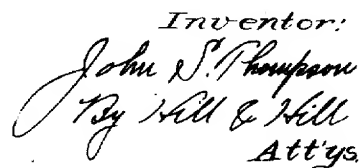 Inventor:
John S. Thompson
By Hill & Hill
Att'ys